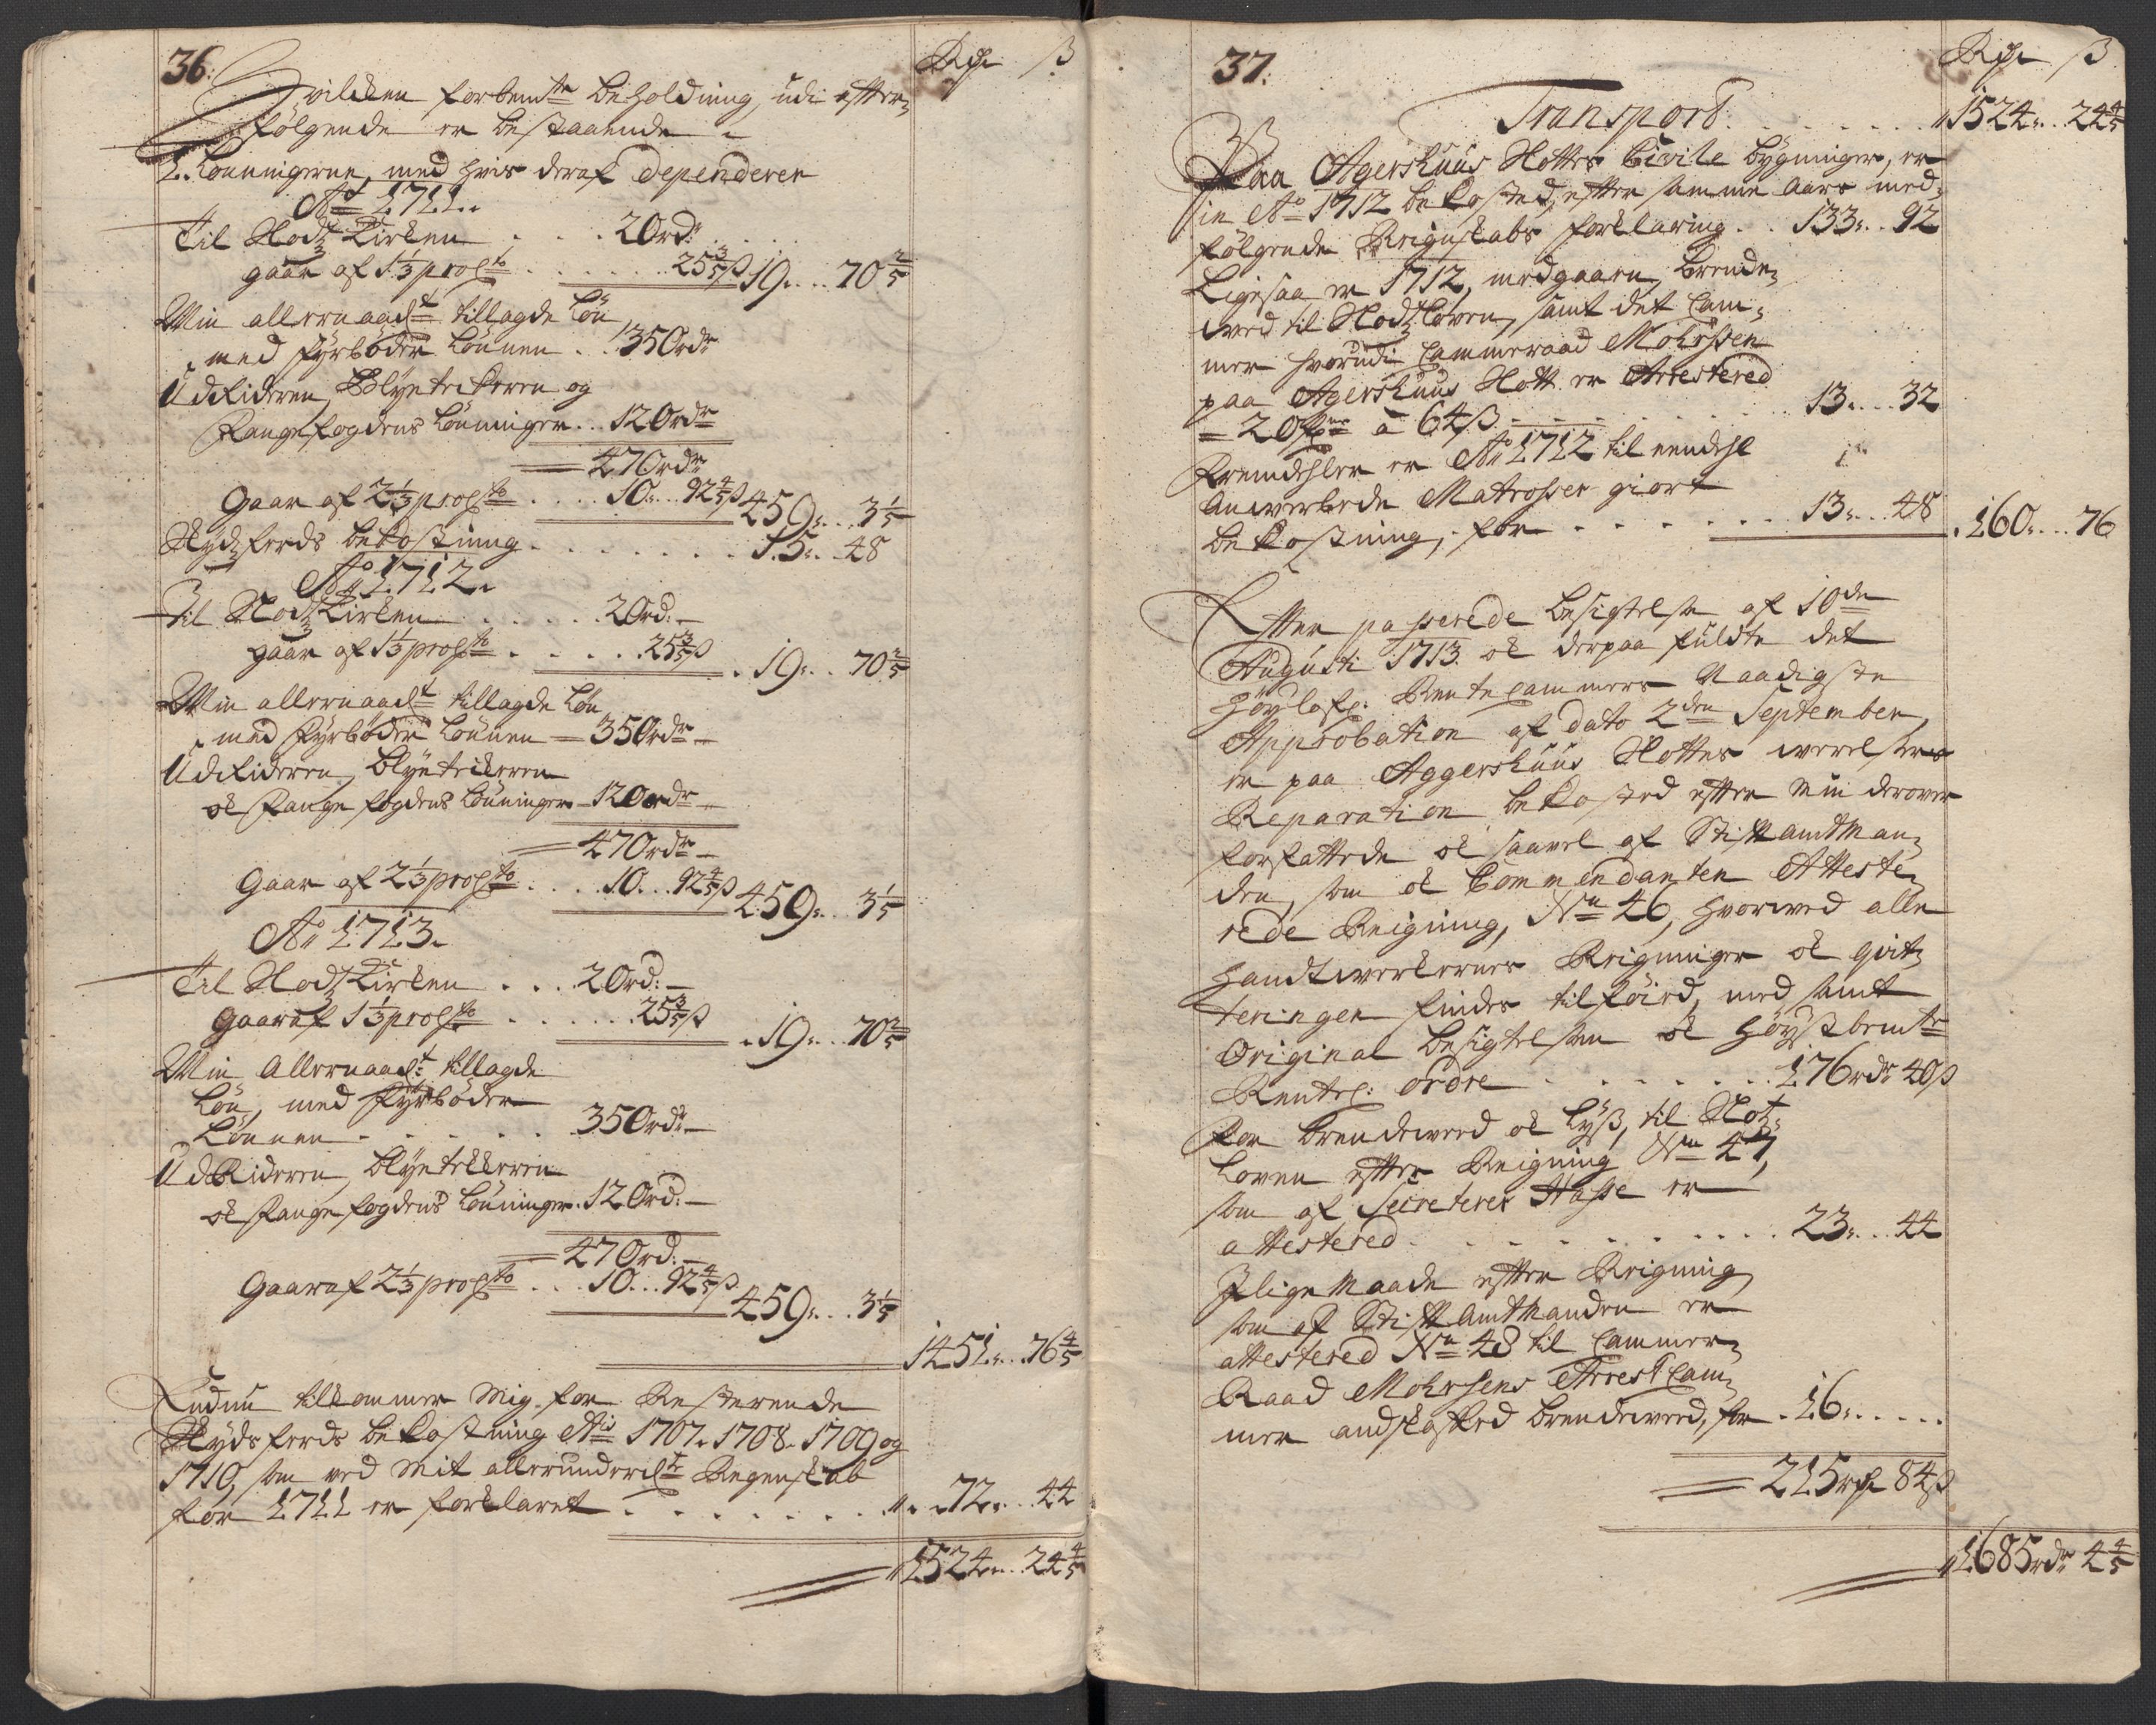 36.
Rdr ß
Hvilken forbemte Beholdning, udi efter-
følgende er bestaaende
L. Lønningerne, med hvis deraf dependerer
Ao 1711.
Til Slodz Kirken . . . 20rd:
gaar af 1 1/3 proCto . . . . . 25 3/5 ß 19. . . 70 2/5
Min allernaadst tillagde Løn
med Fyrbøder Lønnen . . 350rdr
Udrideren, Blytekkeren og
Fangefogdens Lønninger . . 120rdr
470rdr
Gaar af 2 1/3 proCto . . . 10. . 92 4/5 ß 459. . . 3 1/5
Skydzferds bekostning . . . . . . . 15. . 48
Ao 1712.
Til Slodz Kirken . . . . . 20rd:
gaar af 1 1/3 proCto . . . . . 25 3/5 ß . 19. . . 70 2/5
Min allernaadst tillagde Løn
med Fyrbøder Lønnen — 350rdr
Udrideren, Blytekkeren
ok Fange fogdens Lønninger — 120rdr
470rdr
Gaar af 2 1/3 proCto . . . 10. . 92 4/5 ß 459. . . 3 1/5
Ao 1713.
Til Slodz Kirken . . . 20rd:
Gaar af 1 1/3 proCto . . . . . 25 3/5 ß . 19. . . 70 2/5
Min Allernaadst tillagde
Løn, med Fyrbøder
Lønnen . . . . . 350rdr
UdRideren, Blytekkeren
ok Fange fogdens Lønninger . 120rd:
470rd:
Gaar af 2 1/3 proCto . . . 10. . 92 4/5 ß 459. . . 3 1/5
1451. . . 76 4/5
Endnu tilkommer Mig for Resterende
Skyds ferds bekostning Ais 1707. 1708. 1709 og
1710, som ved Mit allerunderdste Regenskab
for 1711 er forklaret . . . . . . . . 72. . . 44
1524. . . 24 4/5
37.
Rdr ß
Transport . . . . . . 1524. . . 24 4/5
Paa Agershuus Slottes Civile bygninger, er
in Ao 1712 bekosted, efter samme Aars med-
følgende Reignskabs forklaring . . 133. . 92
Ligesaa er 1712, medgaaen, brende-
wed til Slodz Loven, samt det Cam-
mer hvorudi Cammeraad Mohrssen
paa Agershuus Slott er Arresterred
= 20 à 64 ß . . . . . . . 13. . . 32
Fremdeler er Ao 1712 til eendehl
Anwerbede Matrosser giort
bekostning, for . . . . . . 13. . . 48 . 160. . . 76
Efter passerede besigtelse af 10de
Augusti 1713 ok derpaa fuldte det
Høylofl: Rente Cammers Naadigste
Approbation af dato 2den September,
er paa Aggershuus Slottes werelsers
Reparation bekosted efter Min derover
forfattede ok saavel af Stiftamtman-
den, som ok Commendanten Atteste-
rede Reigning, No 46, hvorved alle
Handtwerkernes Reigninger ok qvit-
teringer findes tilføied, med samt
Original besigtelsen ok Høystbemte
RenteC: ordre . . . . . . . 176rdr 40ß
For brendeweed ok Lyß, til Slotz-
Loven efter Reigning No 47,
som af Secreterer Hasse er
attestered . . . . . . . . . . 23. . . 44
I lige Maade efter Reigning
som af Stiftamtmanden er
attestered No 48 til Cammer-
Raad Mohrsens Arrest Cam-
mer andskaffed brendeweed, for . 16. . . . .
215rdr 84ß
1685rdr 4 4/5